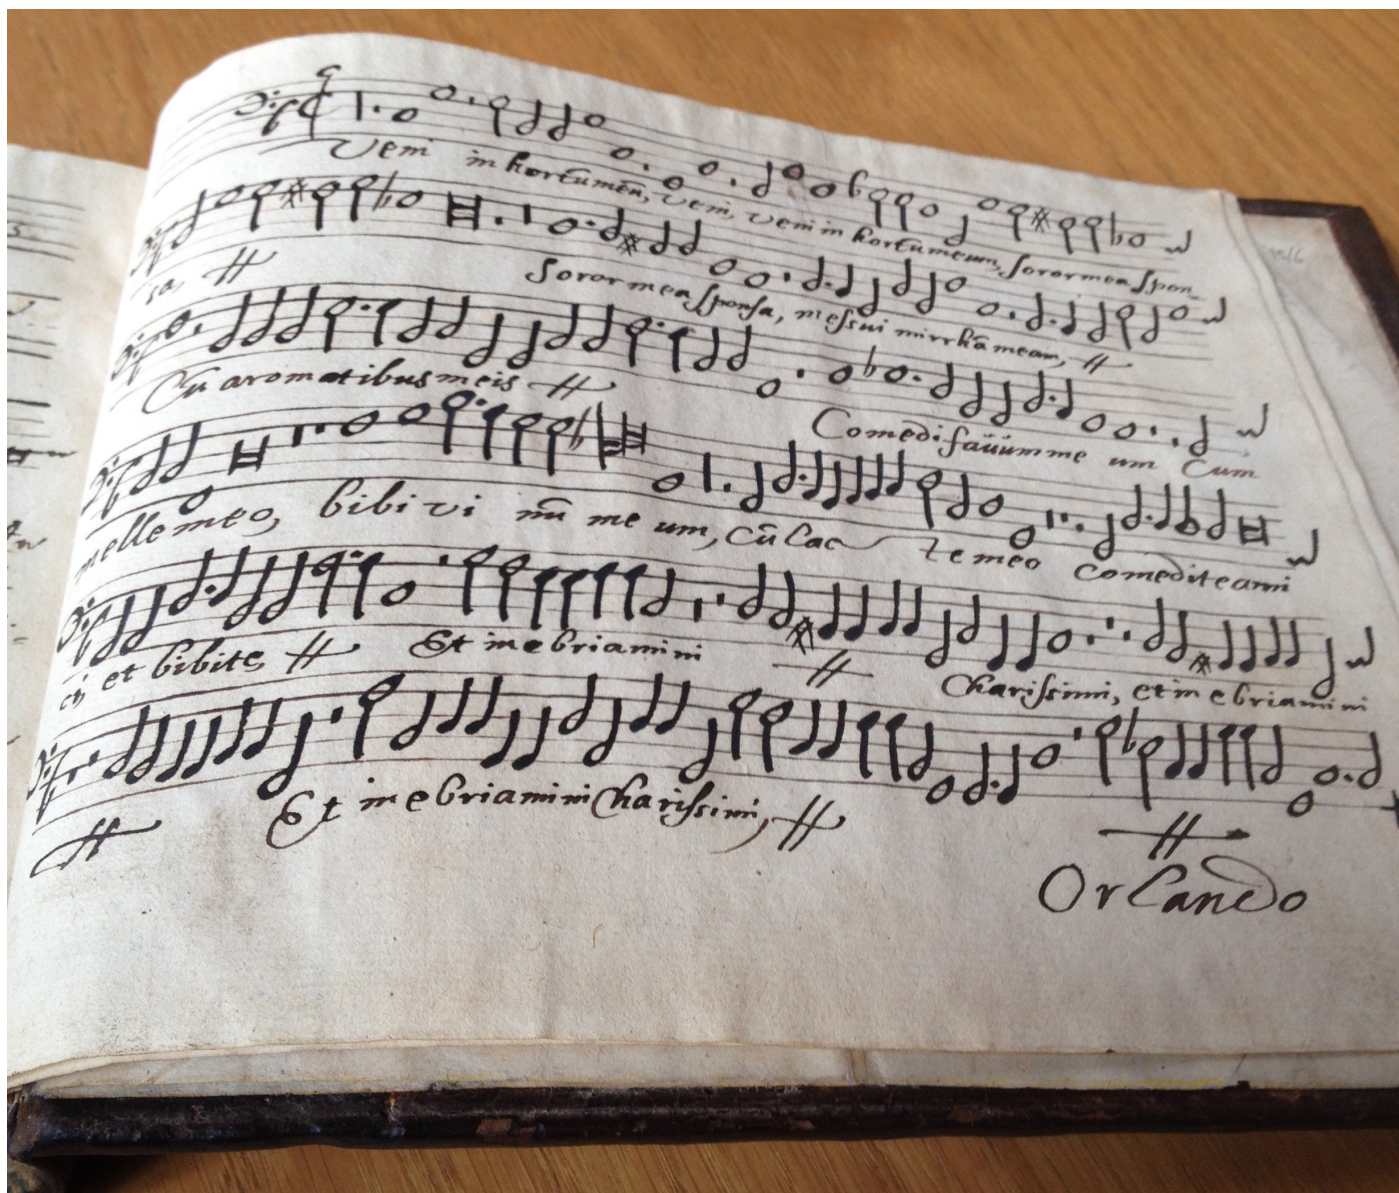 Veni in hortūmeū, veni, veni in hortum eum, soror mea spon
sa, soror mea sponsa, messui mirrhā meam,
Cū aromatibus meis Comedi favum me um Cum
melle meo, bibi vi nū me um, cū lac te meo comedite ami
ci et bibite Et inebriamini Charissimi, et inebriamini
Et inebriamini Charissimi,
Orlando